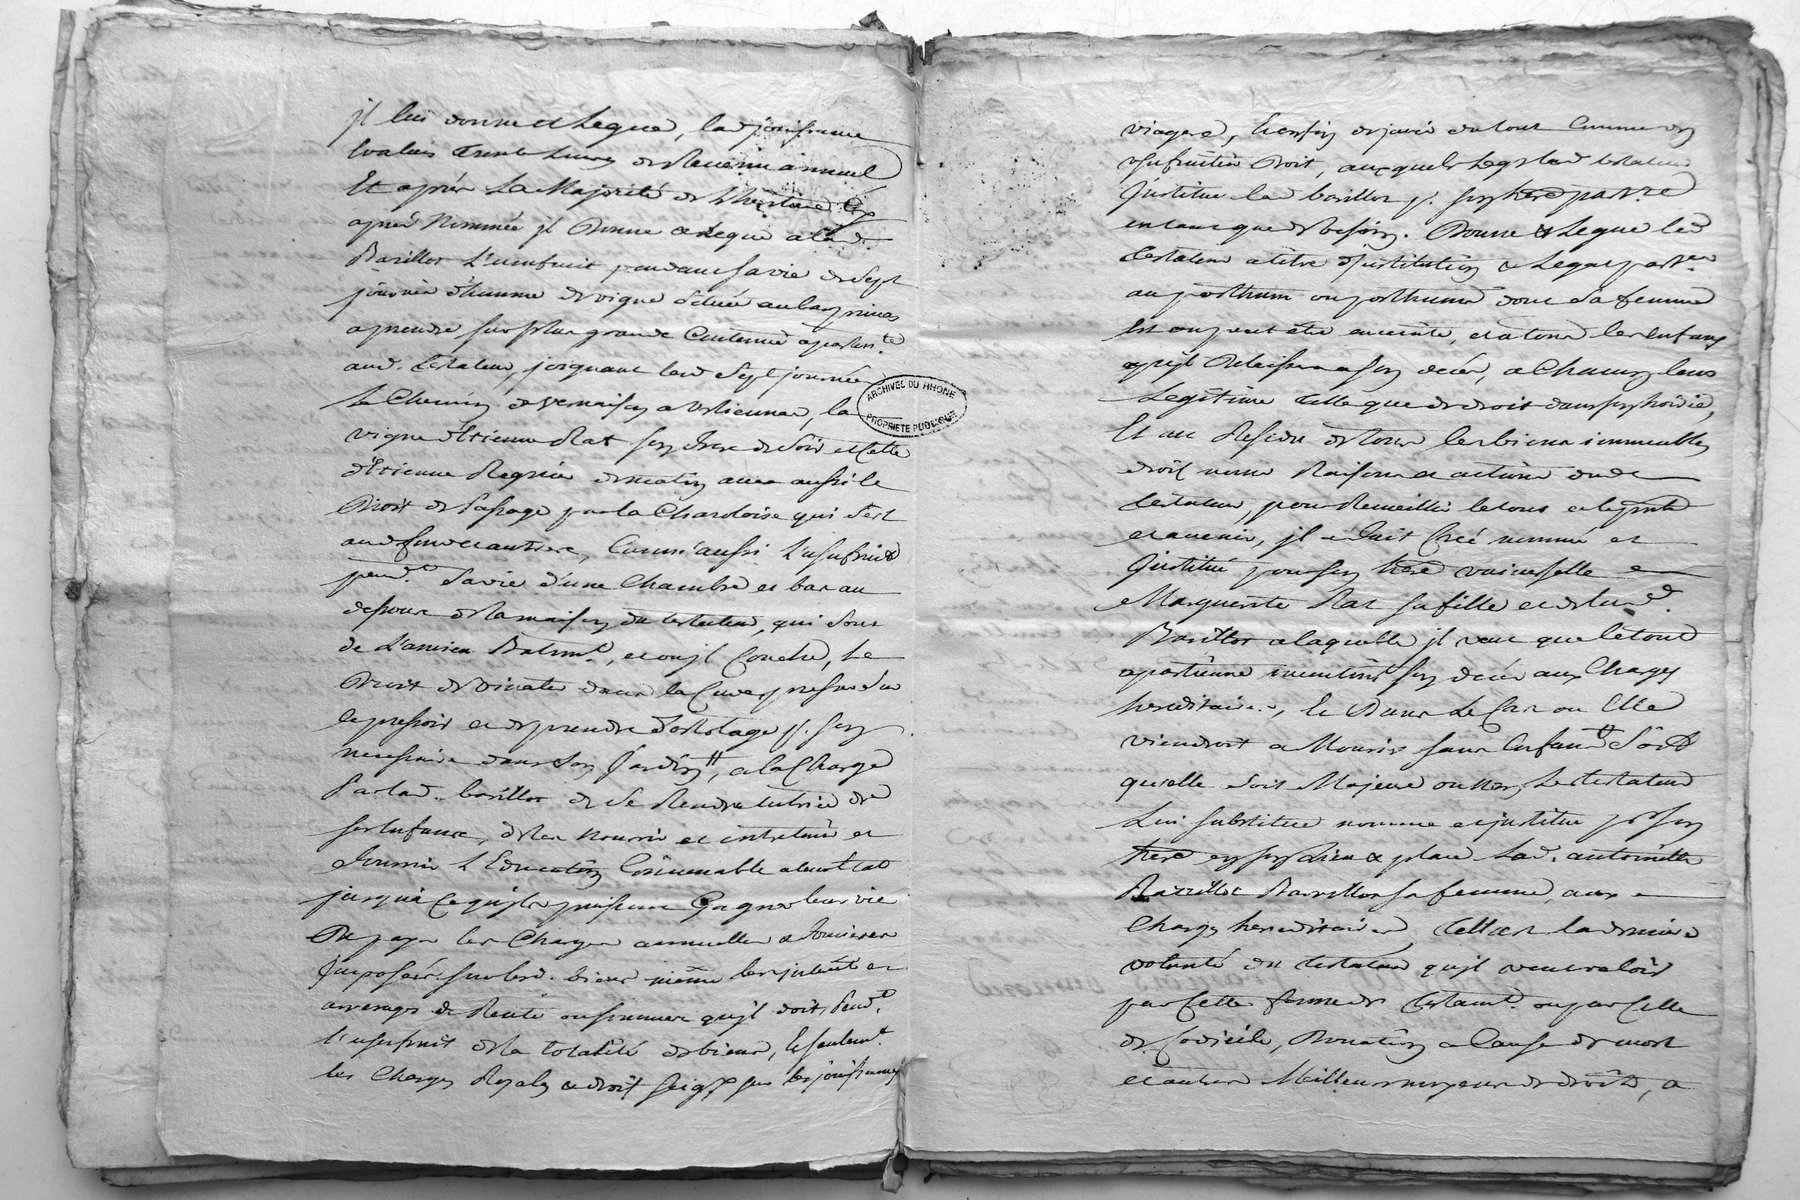 jl lui donne et Legue, lad. jouissance
Evaluée trente Livres de Revenu annuel
Et après La Majorité de L'heritiere Cy
après Nommée jl Donne & Legue a lad.
Barillot L'usufruit pendant sa vie de Sept
journée d'homme de vigne Scituée au
a prendre sur plus grande Contenue apartent.te
aud. testateur, joignant lesd. Sept journées
Le Chemin de vernaison a la
vigne d'Etienne Rat son frere de Soir et Celle
d'Etienne de matin avec aussi le
Droit de Passage par la qui Sert
aud. fond et autres, Comm'aussi L'usufruit
pend.t Sa vie d'une Chambre et bas au
dessous de la maison du testateur, qui Sont
de L'ancien Batim.t, et ou jl Couche, Le
Droit de dans la Cuve
le pressoir et de prendre p.r son
necessaire dans Son Jardin, a la Charge
Par lad. barillot de Se Rendre tutrice de
ses Enfans, de les nourrir et entretenir et
fournir L'Education Convenable a leur Etat
jusqu'à Ce qu'ils puissent Gagner leur vie
De payer les Charges annuelles & foncieres
Jmposées sur lesd. biens même les jnterêts et
arrerages de Rente ou sommes qu'jl doit, Pend.t
l'usufruit de la totalité des biens, Et Seulem.t
les Charges Royales & droit Seig.x sur les jouissances
ARCHIVES DU RHONE
PROPRIETE PUBLIQUE
viagere, Et enfin de jouir du tout Comme un
usufruitier Doit, auxquels Legs lad. testateur
Jnstitue lad. barillot p.r son here part.re
en tant que de besoin. Donne & Legue led.
testateur a titre d'jnstitution & Legat part.er
au posthum ou posthume dont Sa femme
Est ou peut etre enceinte, et a tous les Enfans
qu'jl Delaissera a Son decès, a Chacun leur
Legitime telle que de droit dans son hoirie,
Et au Residu de tous les biens immeubles
droits noms Raisons et actions dud.
testateur, pour Recueillir le tous et le pnt
et avenir, jl a fait Créé nommé et
Jnstitué pour Son here universelle
Marguerite Rat Sa fille et de lad.
Barillot a laquelle jl veut que le tout
apartienne incontinent Son decès aux Charges
hereditaires, Et Dans Le Cas ou Elle
viendroit a Mourir Sans Enfans Soit
qu'elle Soit Majeure ou Non, Le testateur
Lui Substitue nomme et jnstitue p.r Son
here en Son Lieu & place Lad. antoinette
Barillot Sa femme, aux
Charges hereditaires, telle est la derniere
volonté du testateur qu'jl veut valoir
par Cette forme de testam.t ou par Celle
de Codicile, Donation a Cause de mort
et autres Meilleurs moyens de droits, a